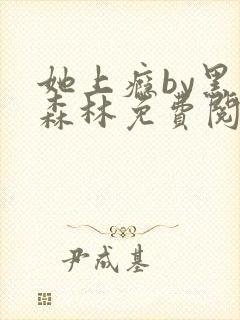 她上瘾by黑
森林免费阅
尹成基